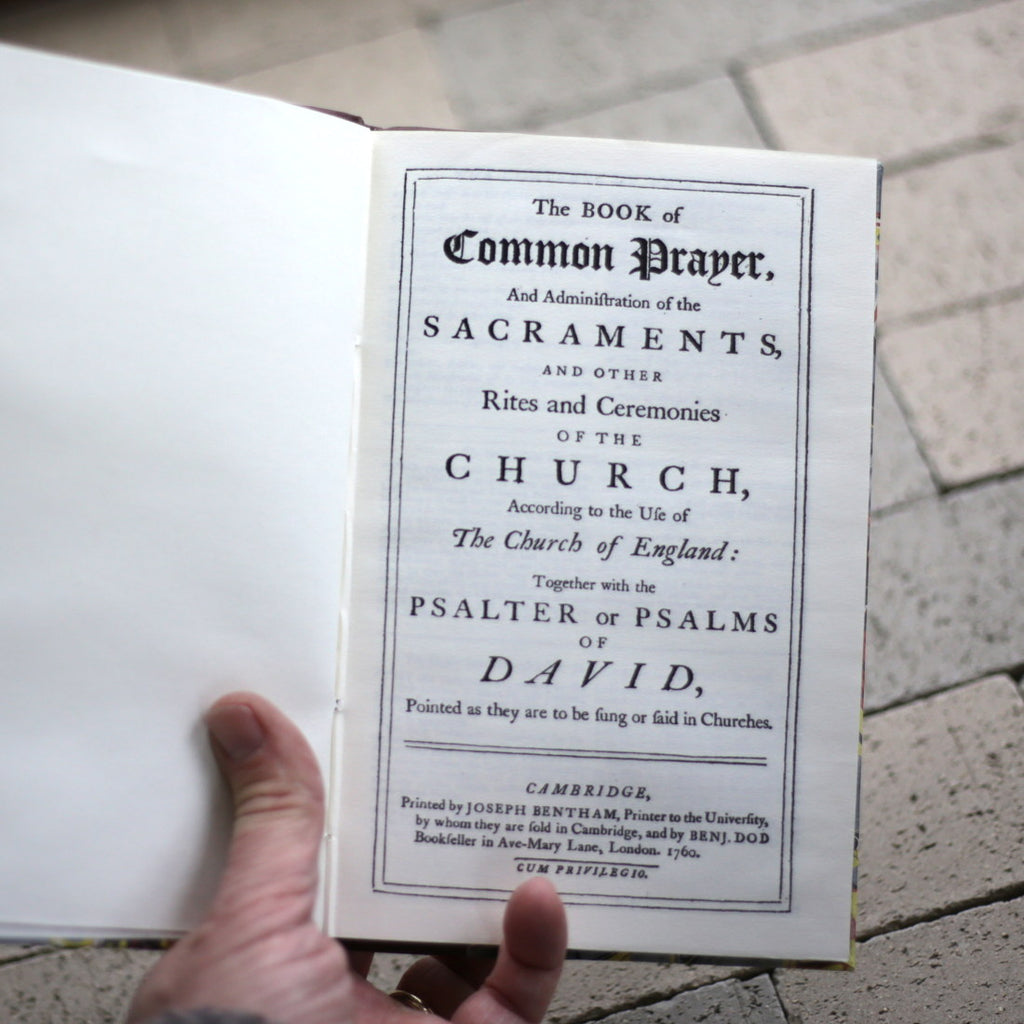 The BOOK of
Common Prayer,
And Adminiſtration of the
SACRAMENTS,
AND OTHER
Rites and Ceremonies
OF THE
CHURCH,
According to the Uſe of
The Church of England:
Together with the
PSALTER or PSALMS
OF
DAVID,
Pointed as they are to be ſung or ſaid in Churches.
CAMBRIDGE,
Printed by JOSEPH BENTHAM, Printer to the Univerſity,
by whom they are ſold in Cambridge, and by BENJ. DOD
Bookſeller in Ave-Mary Lane, London. 1760.
CUM PRIVILEGIO.